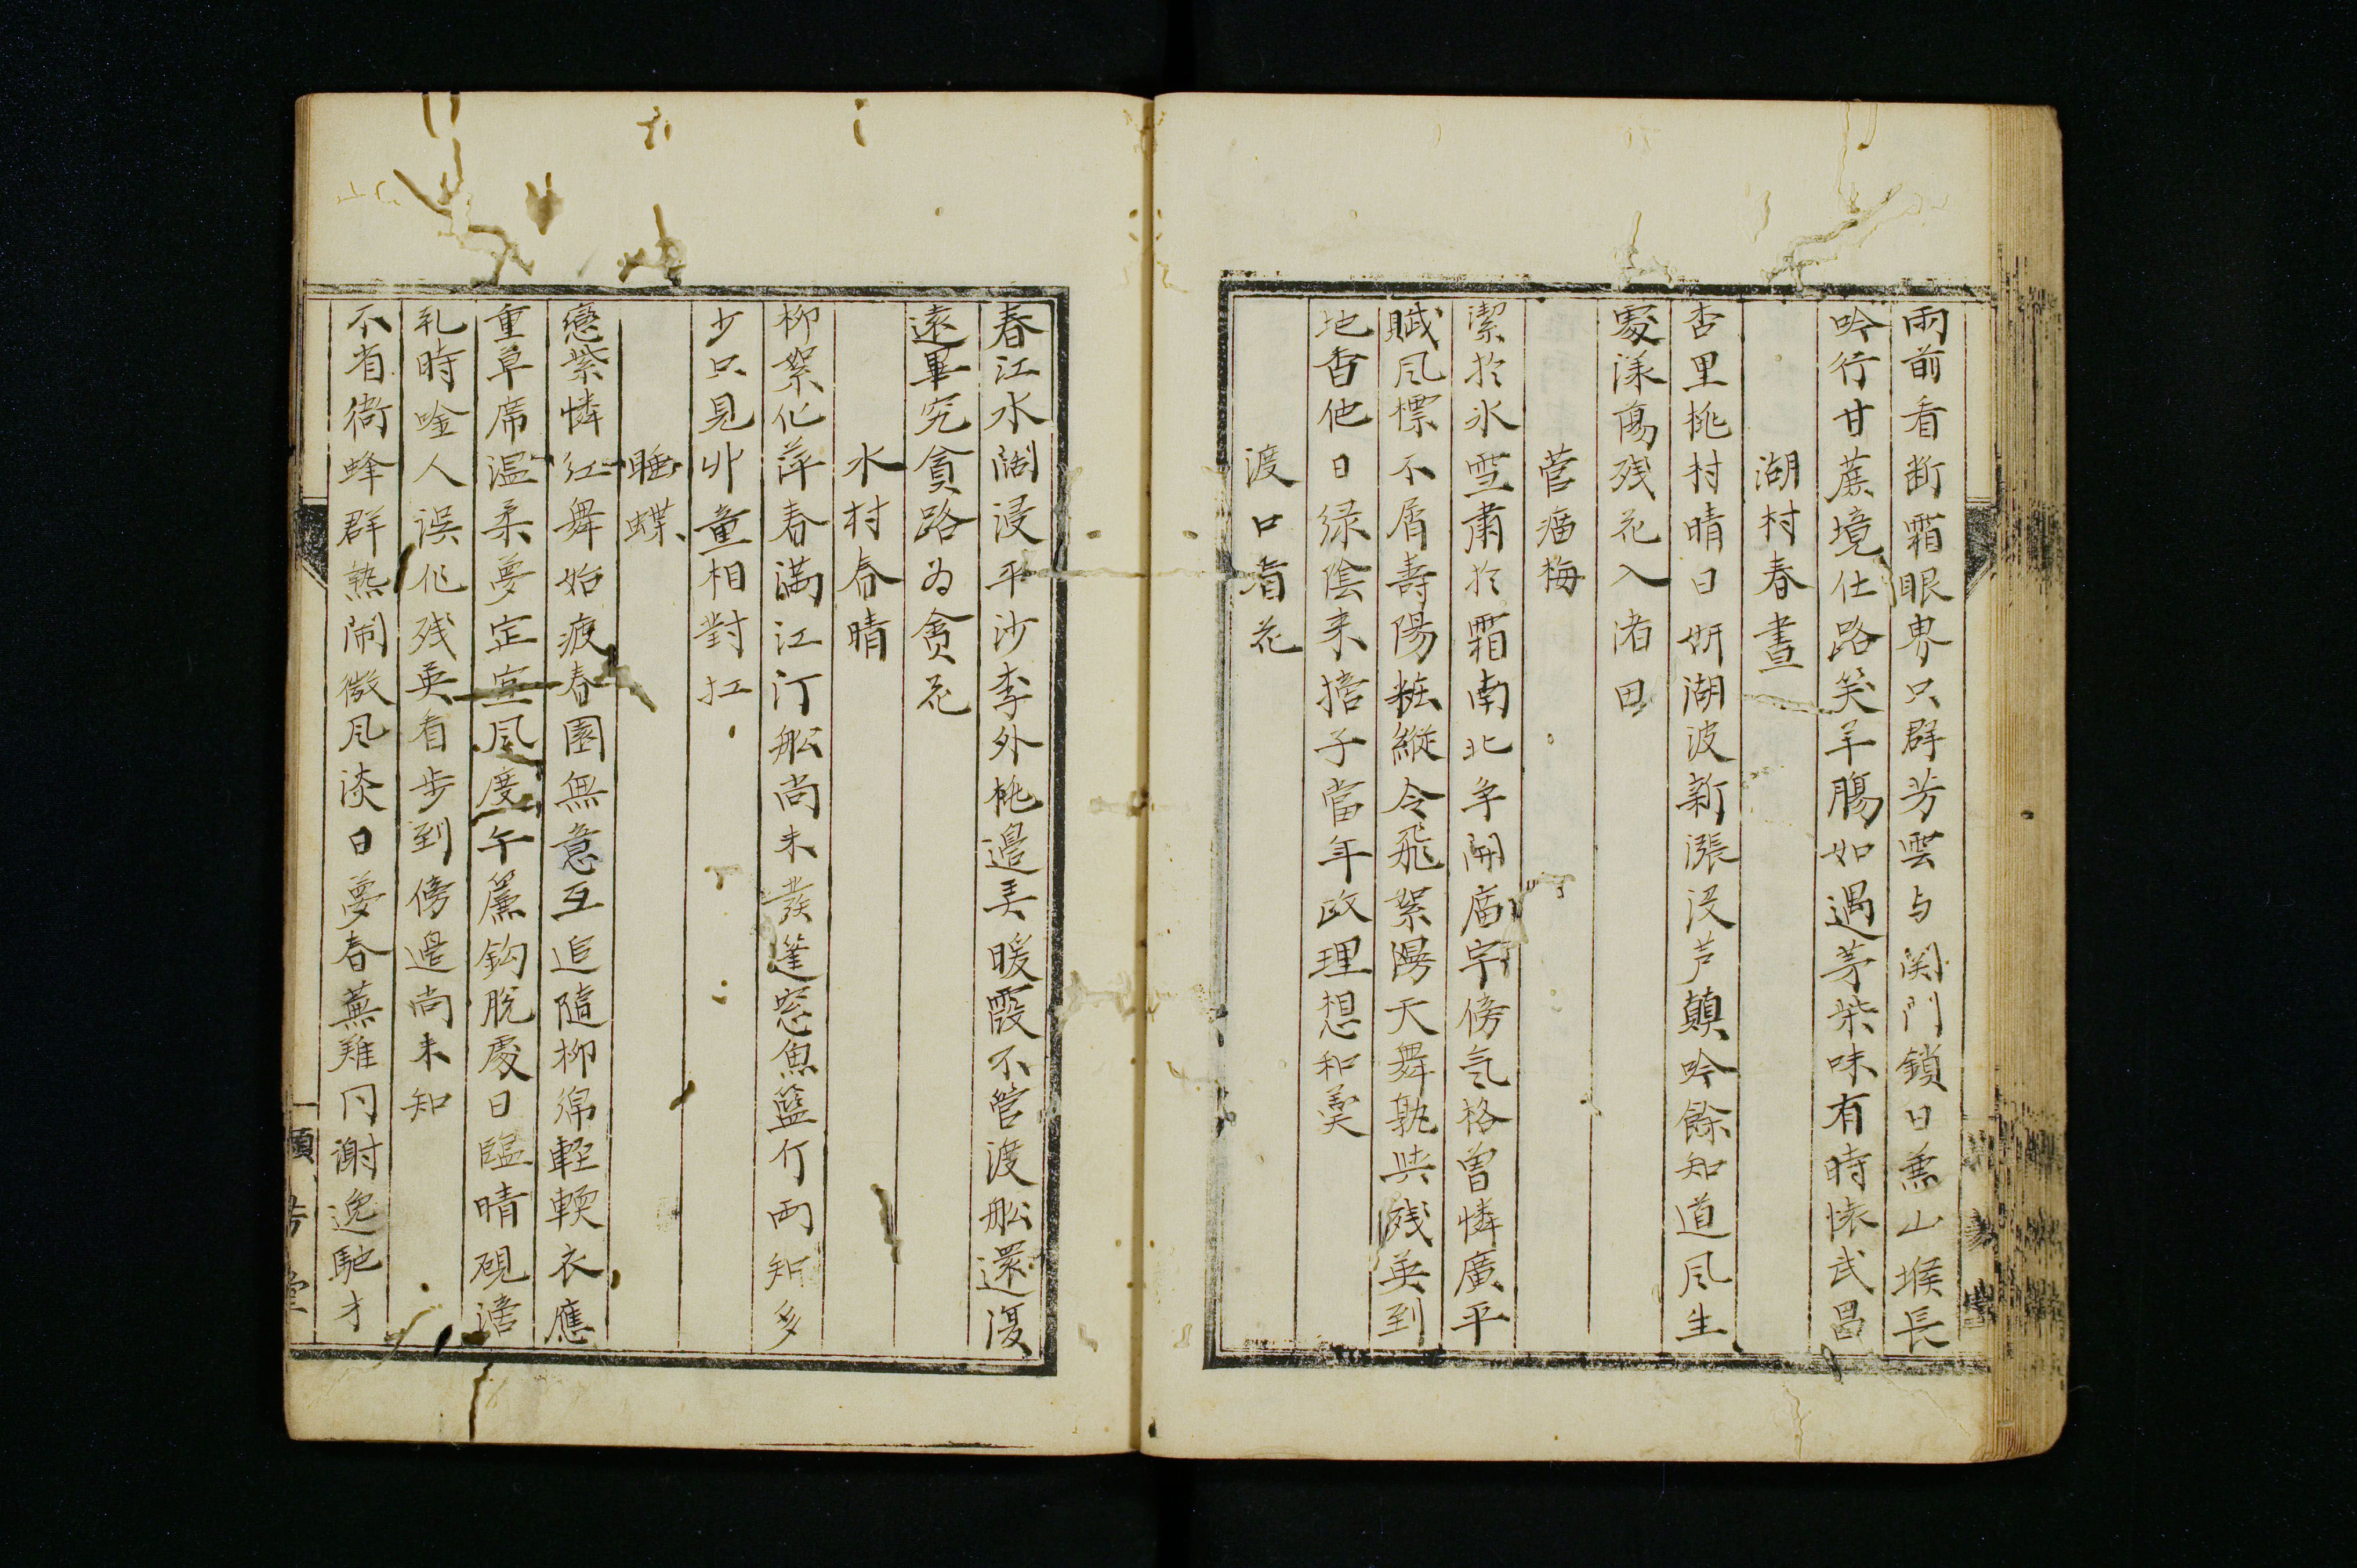 雨前看断霜眼界只群芳雲与関門鎖日蕉山堠長
吟行甘蔗境仕路笑羊腸如遇茅柴味有時懐武昌
湖村春晝
杏里桃村晴日妍湖波新漲没芦顛吟餘知道風生
處漾蕩残花入渚田
菅廟梅
潔於氷雪肅於霜南北争開庿宇傍気格曽憐廣平
賦風標不屑壽陽粧縦令飛絮漫天舞孰与残英到
地香他日緑陰来擔子當年政理想和羹
渡口看花
春江水闊浸平沙李外桃邉美暖霞不管渡船還復
遠畢究貪路為貪花
水村春晴
柳絮化萍春満江汀船尚未發篷窓魚籃行雨知多
少只見丱童相對扛
睡蝶
戀紫憐紅舞始疲春園無意互追隨柳綿輕輭衣應
重草席温柔夢定宜風度午簾鈎脱處日臨晴硯
乳時 人誤化残英看歩到傍邉尚未知
不省衙蜂群熱閙微風淡日夢春蕪難同謝逸馳才